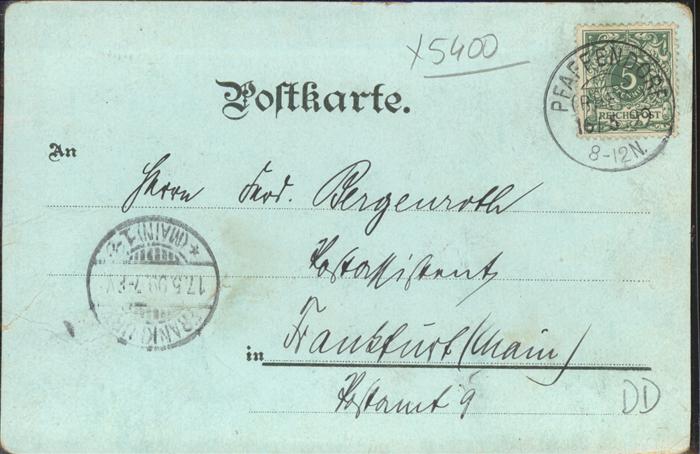 x5400
Postkarte.
5
REICHSPOST
PFAFFENDORF
8-12N.
An
Herrn Ferd. Bergenroth
Postassistent
in Frankfurt (Main)
Postamt 9
*(MAIN) 1
17.5.99.7-8V
FRANKFURT
DD